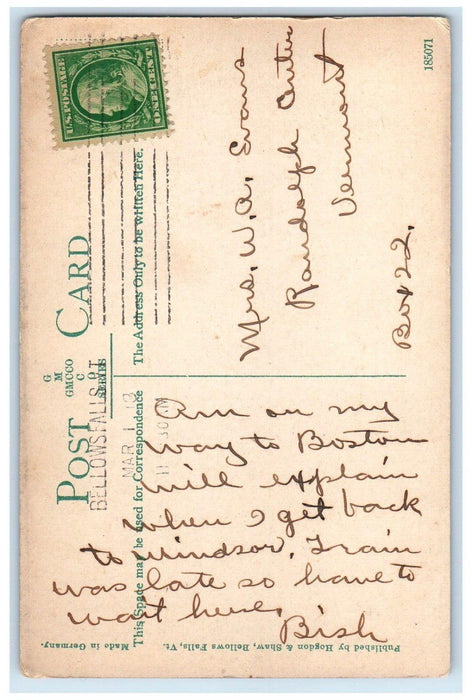 POST CARD
G
M C
GMCCO
SERIES
This Space may be used for Correspondence
The Address Only to be written Here.
U.S. POSTAGE
ONE CENT
BELLOWS FALLS VT.
MAR 1
Mrs. W. A. Evans
Randolph Center
Vermont
Box 22.
Am on my
way to Boston
will explain
when I get back
to Windsor. Train
was late so have to
wait here.
Bish
Published by Hogdon & Shaw, Bellows Falls, Vt.
Made in Germany.
185071